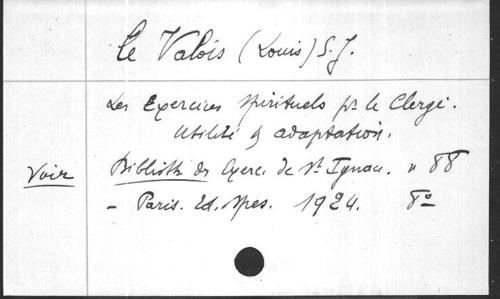 le Valois (Louis) S.J.
Les Exercices spirituels pr le Clergé.
Utilité & adaptation.
Voir Biblioth des Exerc. de St Ignace. n 88
- Paris. Ed. Spes. 1924. 8o